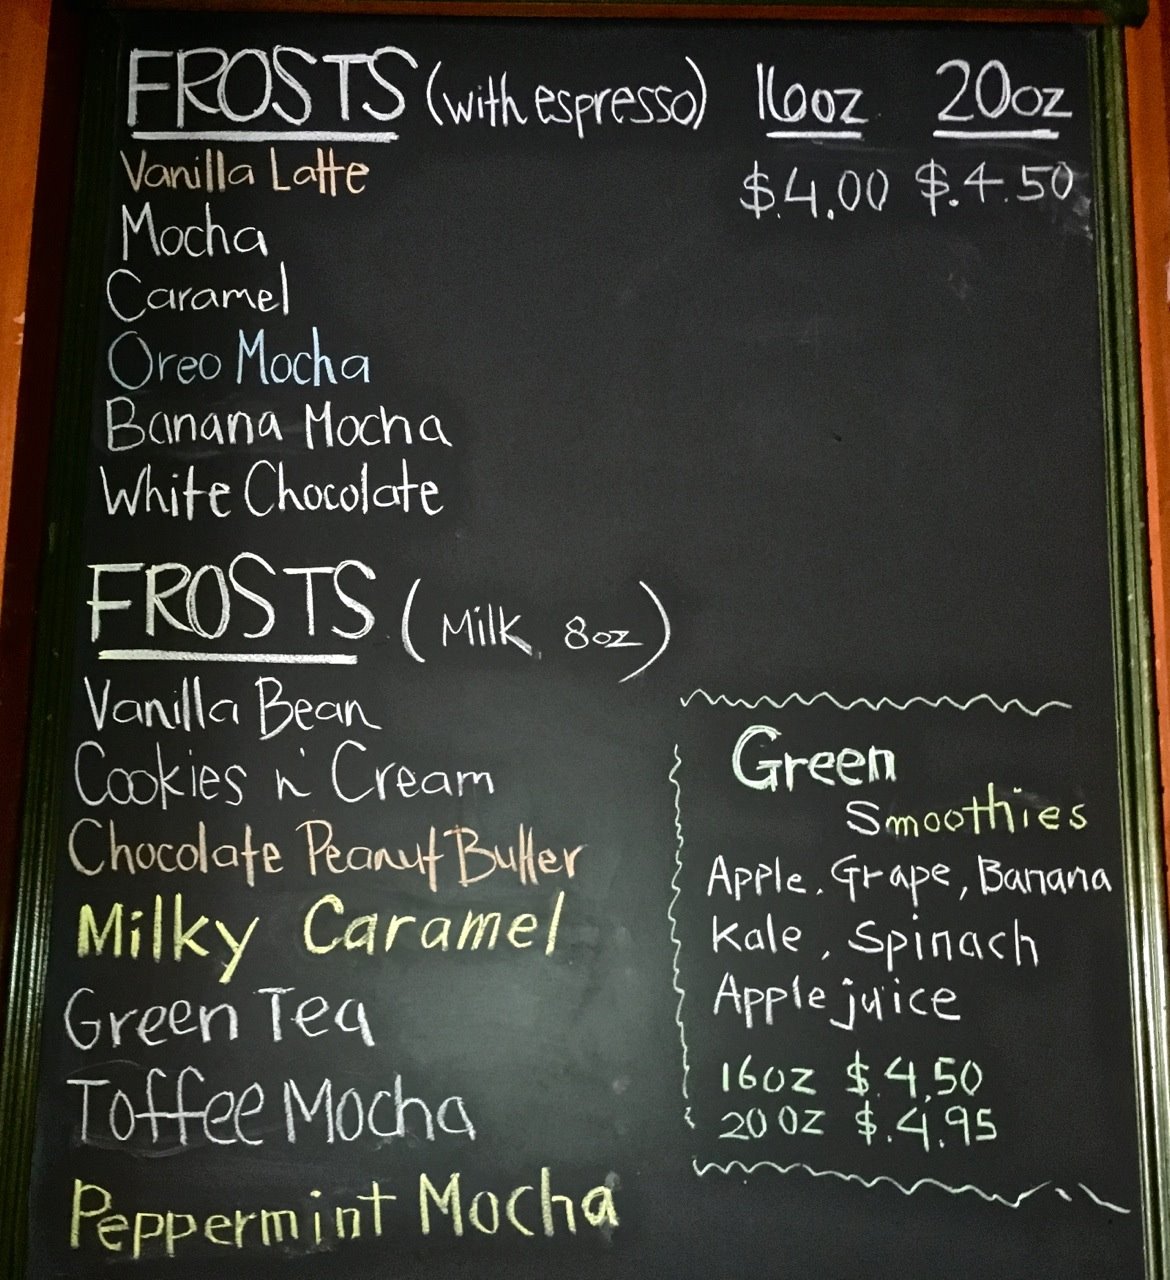 FROSTS (with espresso) 16oz 20oz
Vanilla Latte $.4.00 $.4.50
Mocha
Caramel
Oreo Mocha
Banana Mocha
White Chocolate
FROSTS (Milk 8oz)
Vanilla Bean
Cookies n' Cream
Chocolate Peanut Butter
Milky Caramel
Green Tea
Toffee Mocha
Peppermint Mocha
Green
Smoothies
Apple. Grape, Banana
Kale, Spinach
Apple juice
16oz $.4.50
20oz $.4.95